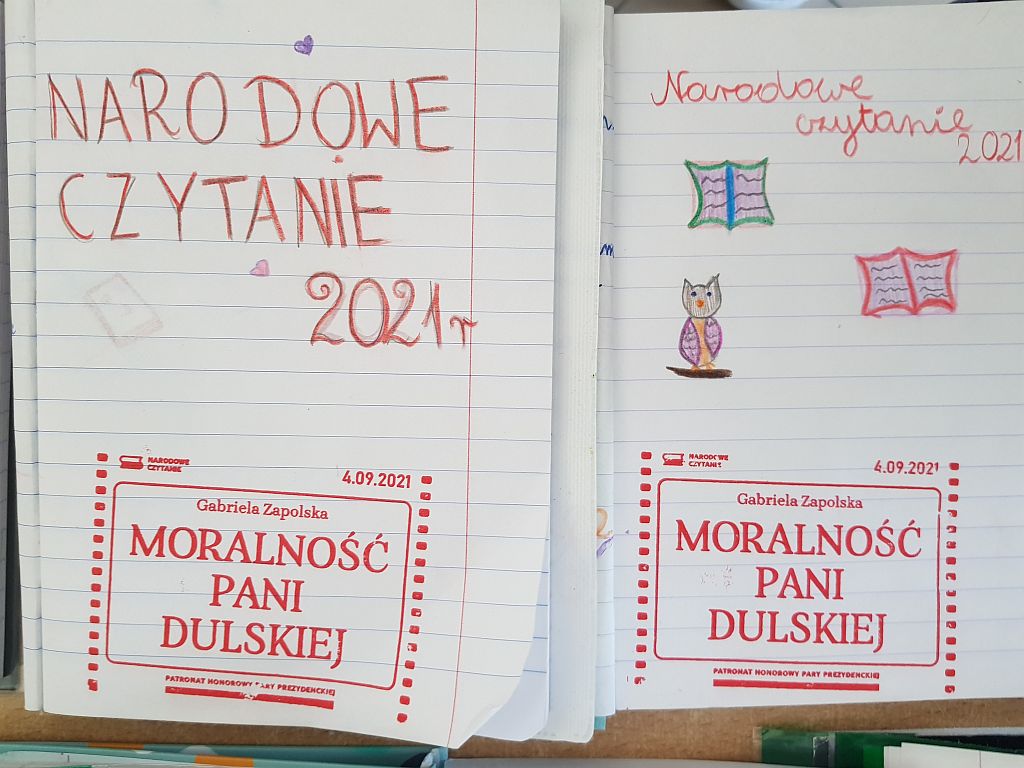 NARODOWE
CZYTANIE
2021 r
NARODOWE
CZYTANIE
4.09.2021
Gabriela Zapolska
MORALNOŚĆ
PANI
DULSKIEJ
PATRONAT HONOROWY PARY PREZYDENCKIEJ
Narodowe
czytanie
2021
NARODOWE
CZYTANIE
4.09.2021
Gabriela Zapolska
MORALNOŚĆ
PANI
DULSKIEJ
PATRONAT HONOROWY PARY PREZYDENCKIEJ